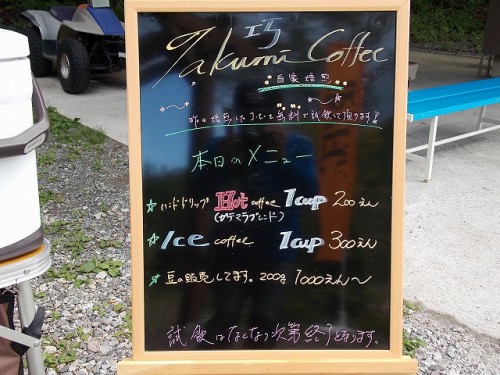 巧
Takumi Coffee
自家焙煎
昨日焙煎したコーヒーを無料で試飲して頂けます!
本日のメニュー
ハンドドリップ Hot coffee 1cup 200えん
(ガテマラブレンド)
Ice coffee 1cup 300えん
豆の販売してます。200g 1000えん〜
試飲はなくなり次第終了となります。